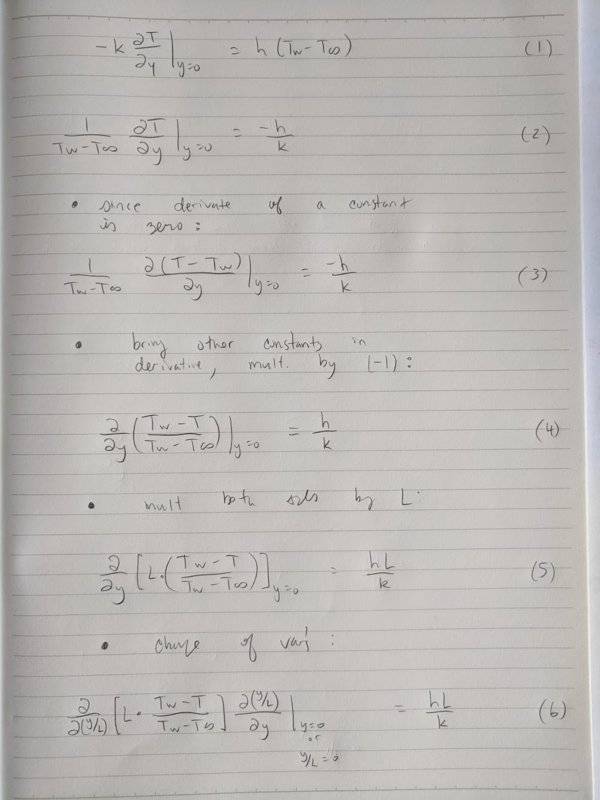 -k ∂T/∂y |y=0 = h (Tw - T∞) (1)
1/(Tw-T∞) ∂T/∂y |y=0 = -h/k (2)
• since derivate of a constant
is zero:
1/(Tw-T∞) ∂(T - Tw)/∂y |y=0 = -h/k (3)
• bring other constants in
derivative, mult. by (-1):
∂/∂y ((Tw - T)/(Tw - T∞)) |y=0 = h/k (4)
• mult both by L:
∂/∂y [L·((Tw - T)/(Tw - T∞))]y=0 = hL/k (5)
• of var:
∂/∂(y/L) [L· (Tw - T)/(Tw - T∞)] ∂(y/L)/∂y |y=0 or y/L = 0 = hL/k (6)